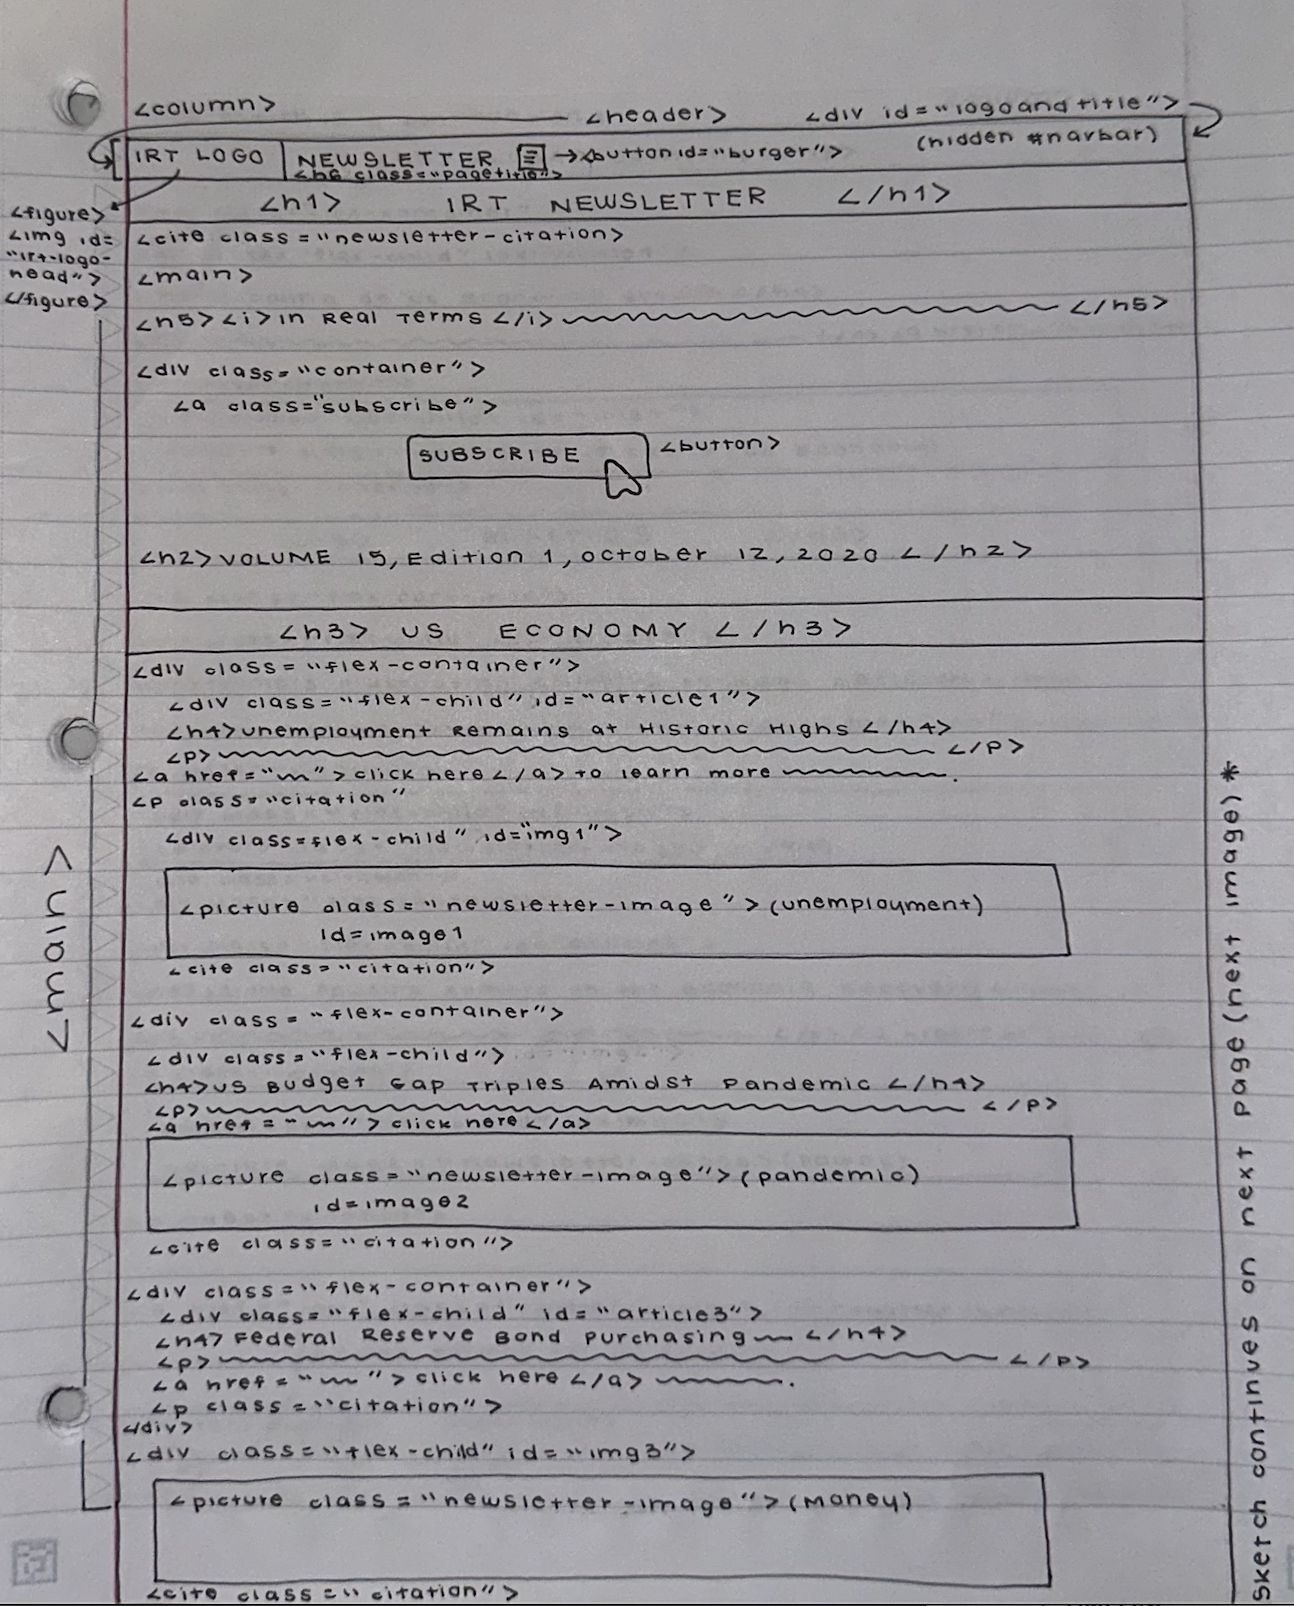 <column>
<header>
<div id="logo and title">
IRT LOGO
NEWSLETTER → <button id="burger"> (hidden #navbar)
<h6 class="pagetitle">
<h1> IRT NEWSLETTER </h1>
<figure>
<img id=
"irt-logo-
head">
</figure>
<cite class="newsletter-citation>
<main>
<h5><i>In Real Terms</i> </h5>
<div class="container">
<a class="subscribe">
SUBSCRIBE <button>
<h2>VOLUME 15, Edition 1, october 12, 2020 </h2>
<h3> US ECONOMY </h3>
<div class="flex-container">
<div class="flex-child" id="article1">
<h4>unemployment Remains at Historic Highs </h4>
<p> </p>
<a href=" "> click here </a> to learn more .
<p class="citation"
<div class=flex-child" id="img1">
<picture class="newsletter-image"> (unemployment)
id=image1
<cite class="citation">
<div class="flex-container">
<div class="flex-child">
<h4>US Budget Gap Triples Amidst Pandemic </h4>
<p> </p>
<a href=" "> click here </a>
<picture class="newsletter-image"> (pandemic)
id=image2
<cite class="citation">
<div class="flex-container">
<div class="flex-child" id="article3">
<h4> Federal Reserve Bond Purchasing </h4>
<p> </p>
<a href=" "> click here </a> .
<p class="citation">
</div>
<div class="flex-child" id="img3">
<picture class="newsletter-image"> (Money)
<cite class="citation">
<main>
Sketch continues on next page (next image) *